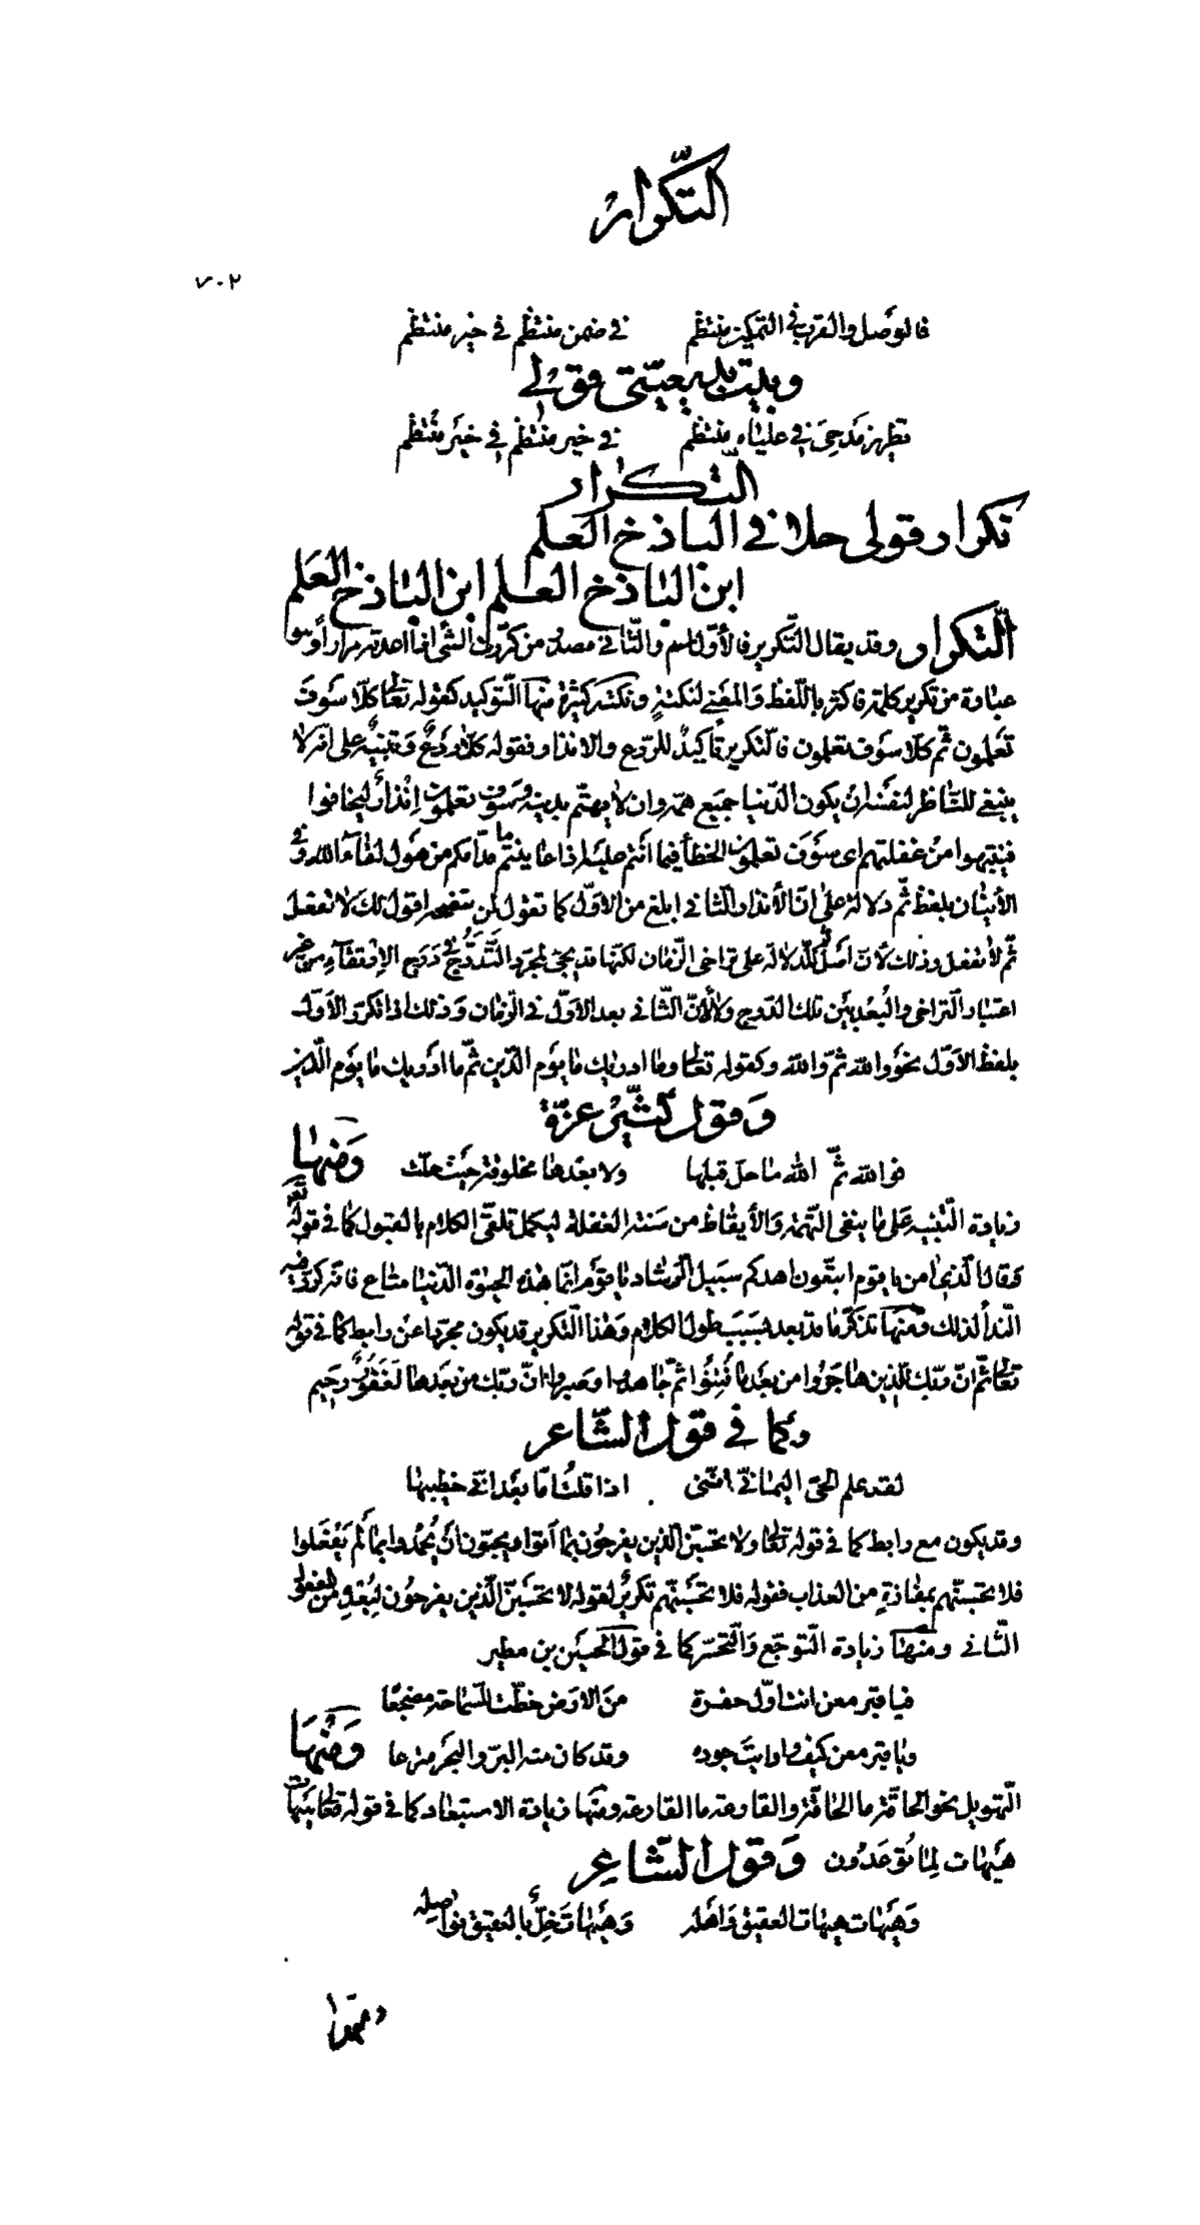 التكرار
٧٠٢
فالوصل والقرب في التمكين منتظم في ضمن منتظم في خير منتظم
وبيت بديعيّتي قولي
تطهير مدحي في علياه منتظم في خير منتظم في خير منتظم
التكرار
تكرار قولي حلا في الباذخ العلم
ابن الباذخ العلم ابن الباذخ العلم
التكرار وقد يقال التكرير فالأوّل اسم والثاني مصدر من كرّرت الشي اذا اعدته مرارا وهو
عبارة من تكرير كلمة فاكثر باللفظ والمعنى لنكتة ونكته كثيرة منها التوكيد كقوله تعالى كلا سوف
تعلمون ثم كلا سوف تعلمون فالتكرير تأكيد للردع والانذار فقوله كلا ردع وتنبيه على انه لا
ينبغي للناظر لنفسه ان يكون الدنيا جميع همه وان لا يهتم بدينه وسوف تعلمون إنذار ليخافوا
فينتبهوا من غفلتهم اى سوف تعلمون الخطأ فيما انتم عليه اذا عاينتم ما قدامكم من هول لقاء الله وفي
الأتيان بلفظ ثم دلالة على ان الأنذار الثاني ابلغ من الاوّل كما تقول لمن تنصحه اقول لك لا تفعل
ثم لا تفعل وذلك لان اصل ثم للدلالة على تراخى الزمان لكنها قد يجئ لمجرد التدرج في درج الارتقاء من غير
اعتبار التراخى والبعد بين تلك الدرج ولا لان الثاني بعد الاوّل في الزمان وذلك اذا تكرر الأول
بلفظ الأوّل نحو والله ثم والله وكقوله تعالى وما ادريك ما يوم الدين ثم ما ادريك ما يوم الدين
وقول كثير عزة
فو الله ثم الله ما حل قبلها ولا بعدها مخلوقة حيث حلت ومنها
زيادة التنبيه على ما ينفى التهمة والأيقاظ من سنة الغفلة ليكمل تلقى الكلام بالقبول كما في قوله تعالى
وقال الذي امن يا قوم اتبعون اهدكم سبيل الرشاد يا قوم انما هذه الحيوة الدنيا متاع فانه كرر فيه
الندأ لذلك ومنها تذكر ما قد بعد بسبب طول الكلام وهذا التكرير قد يكون مجردا عن رابط كما في قوله
تعالى ثم انّ ربّك للذين هاجروا من بعد ما فتنوا ثم جاهدوا وصبروا انّ ربّك من بعدها لغفور رحيم
وكما في قول الشاعر
لقد علم الحي اليمانى انني اذا قلت اما بعد اني خطيبها
وقد يكون مع رابط كما في قوله تعالى ولا تحسبن الذين يفرحون بما أتوا ويحبون أن يحمدوا بما لم يفعلوا
فلا تحسبنهم بمفازة من العذاب فقوله فلا تحسبنهم تكرير لقوله لا تحسبن الذين يفرحون لبعده من المفعول
الثاني ومنها زيادة التوجع والتحسر كما في قول الحسين بن مطير
فيا قبر معن انت اوّل حفرة من الارض خطت للسماحة مضجعا
ويا قبر معن كيف واريت جوده وقد كان منه البر والبحر مترعا ومنها
التهويل نحو الحاقة ما الحاقة والقارعة ما القارعة ومنها زيادة الاستبعاد كما في قوله تعالى هيهات
هيهات لما توعدون وقول الشاعر
وهيهات هيهات العقيق واهله وهيهات خل بالعقيق نواصله